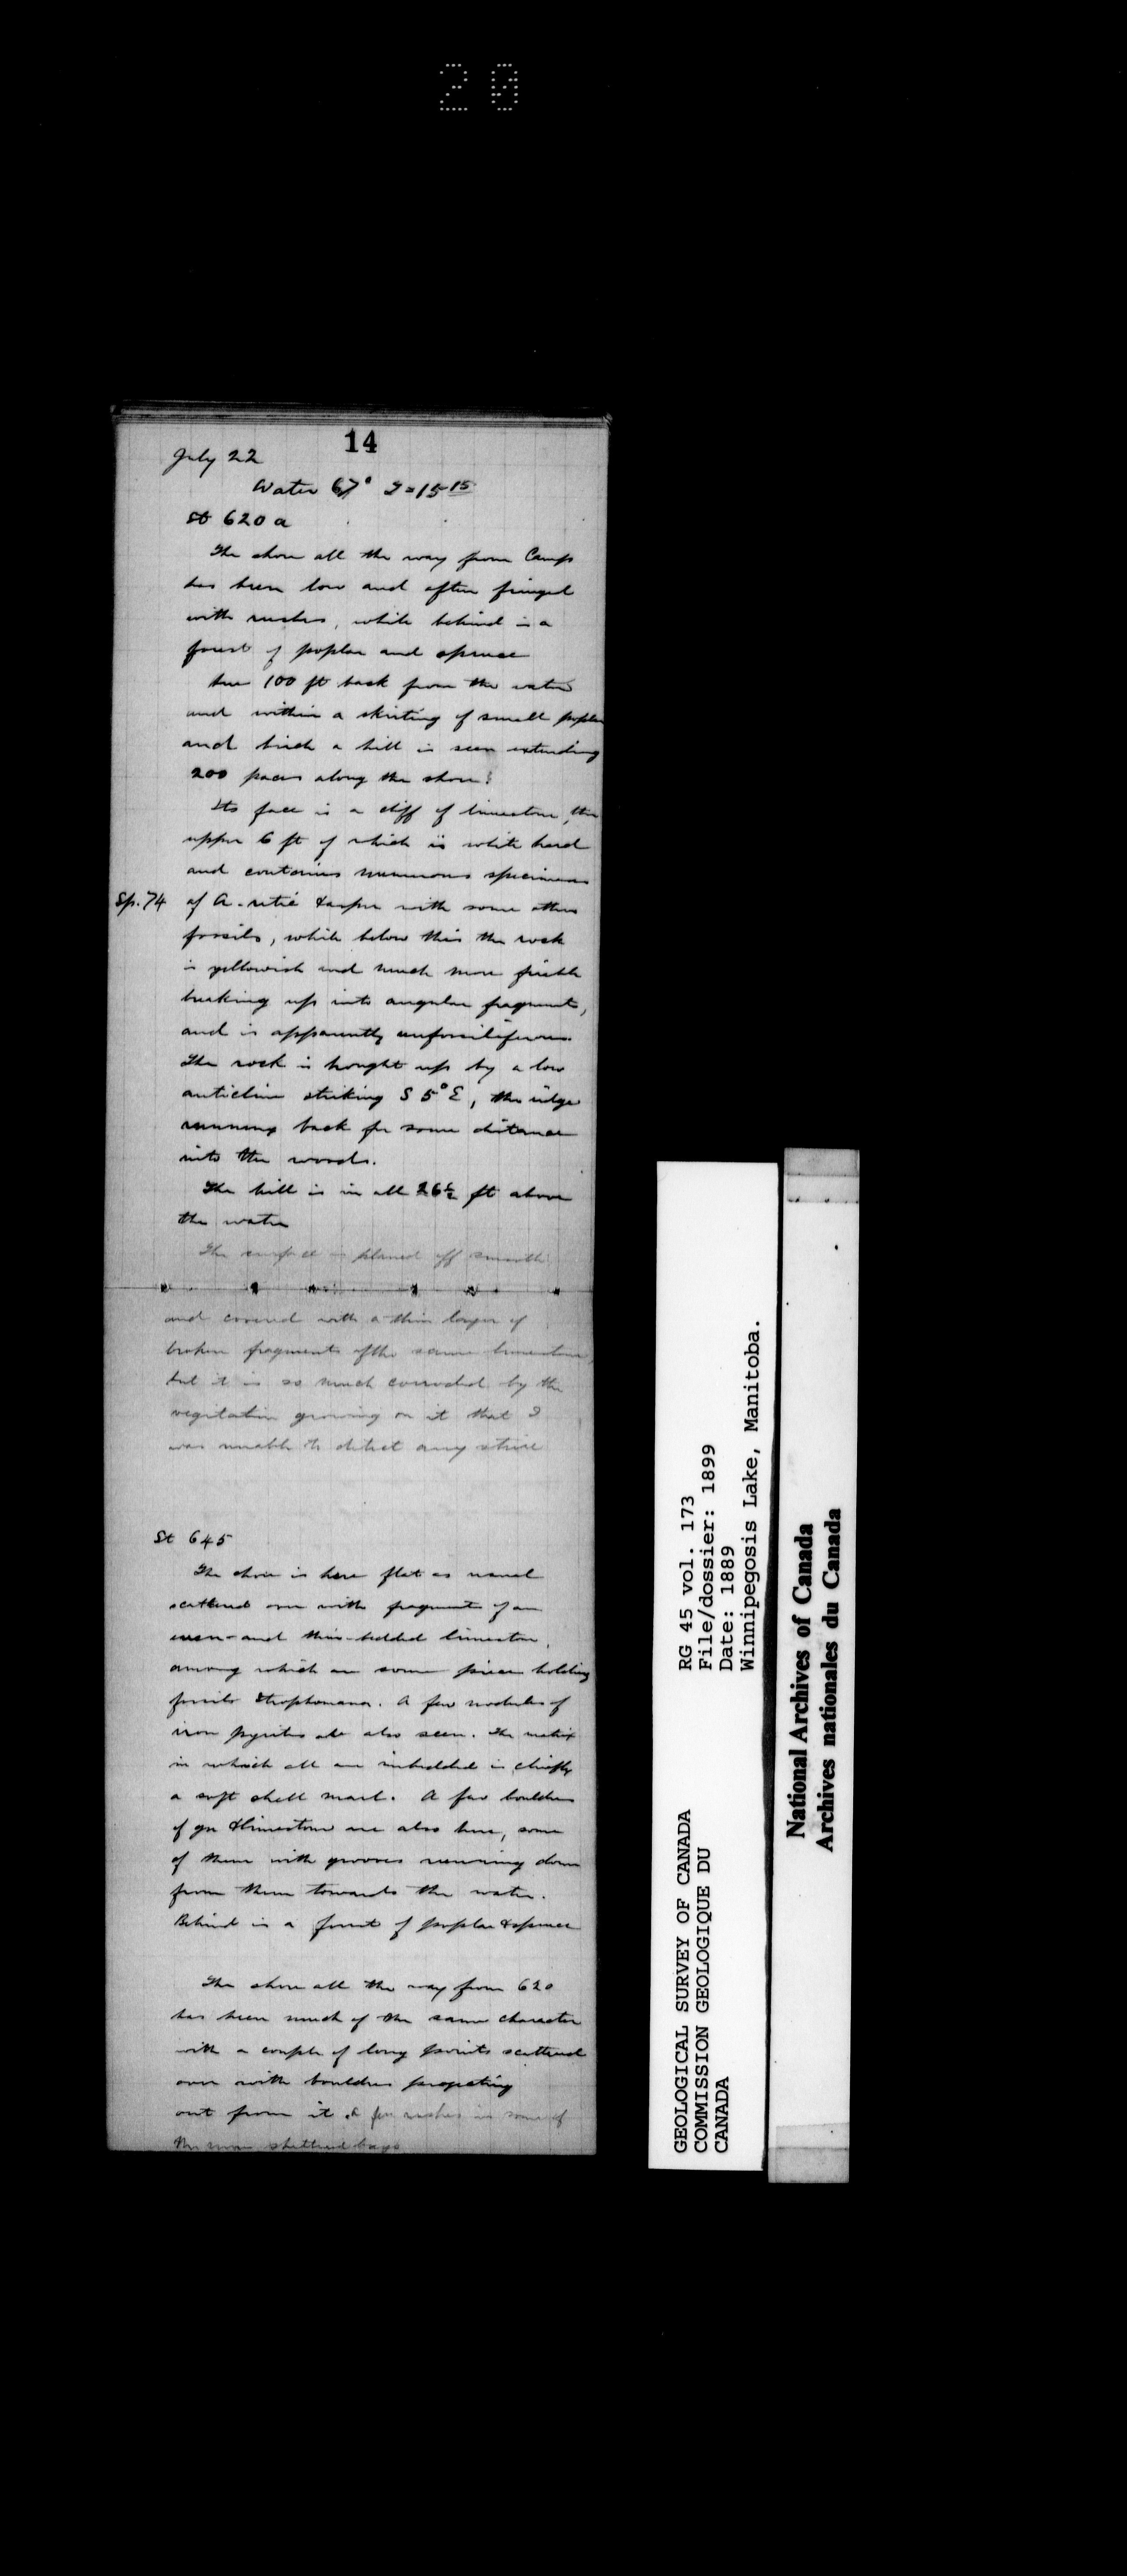 20
14
July 22
Water 67° T=15 15
St 620a
The shore all the way from Camp
has been low and often fringed
with rushes, while behind is a
forest of poplar and spruce
here 100 ft back from the water
and within a skirting of small poplar
and birch a hill is seen extending
200 paces along the shore.
Its face is a cliff of limestone, the
upper 6 ft of which is white hard
and contains numerous specimens
Sp. 74 of A. retic & aspera with some other
fossils, while below this the rock
is yellowish and much more friable
breaking up into angular fragments,
and is apparently unfossiliferous.
The rock is brought up by a low
anticline striking S 5° E, the ridge
running back for some distance
into the woods.
The hill is in all 26½ ft above
the water
The surface is planed off smooth
and covered with a thin layer of
broken fragments of the same limestone,
but it is so much corroded by the
vegitation growing on it that I
was unable to detect any striæ
St 645
The shore is here flat as usual
scattered over with fragments of an
even- and thin-bedded limestone,
among which are some pieces holding
fossils Strophomena. A few nodules of
iron pyrites are also seen. The matrix
in which all are imbedded is chiefly
a soft shell marl. A few boulders
of gn & limestone are also here, some
of them with grooves running down
from them towards the water.
Behind is a forest of poplar & spruce
The shore all the way from 620
has been much of the same character
with a couple of long points scattered
over with boulders projecting
out from it & few rushes in some of
the more sheltered bays
GEOLOGICAL SURVEY OF CANADA
COMMISSION GEOLOGIQUE DU
CANADA
RG 45 vol. 173
File/dossier: 1899
Date: 1889
Winnipegosis Lake, Manitoba.
National Archives of Canada
Archives nationales du Canada